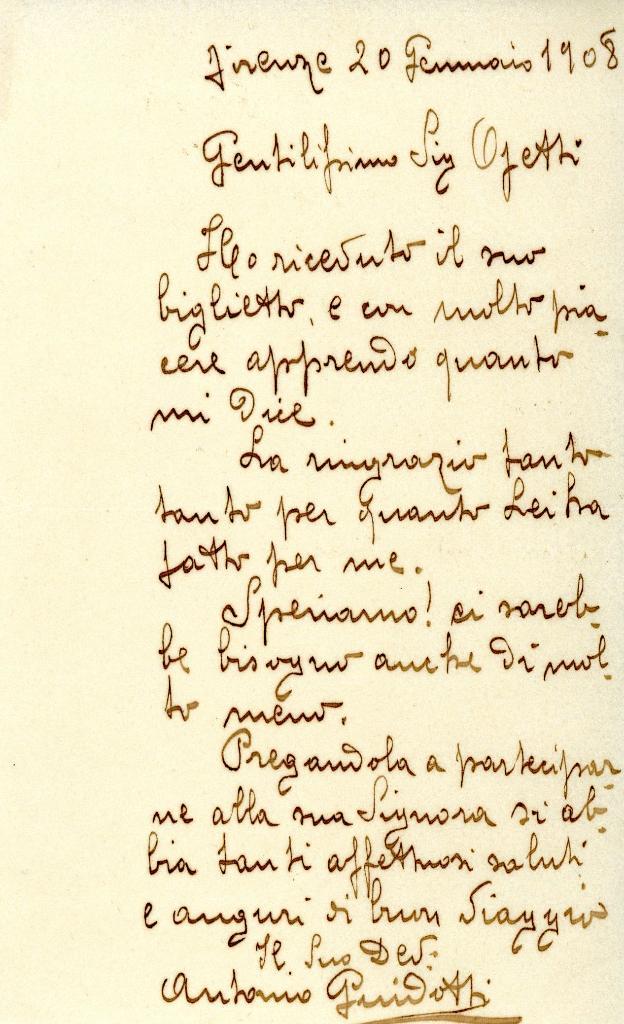 Firenze 20 Gennaio 1908
Gentilissimo Sig Ojetti
Ho ricevuto il suo
biglietto, e con molto pia-
cere apprendo quanto
mi Dice.
La ringrazio tanto
tanto per quanto Lei ha
fatto per me.
Speriamo! ci sareb-
be bisogno anche di mol-
to meno.
Pregandola a partecipar-
ne alla sua Signora si ab-
bia tanti affettuosi saluti
e auguri di buon viaggio
Il Suo Dev.
Antonio Guidotti